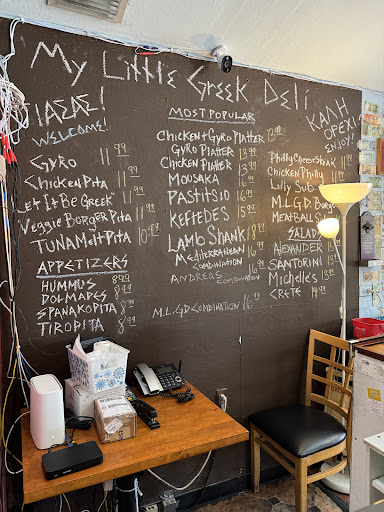 My Little Greek Deli
ΓΙΑΣΑΣ!
WELCOME!
GYRO 11.99
Chicken Pita 11.99
Let It Be Greek 11.99
Veggie Burger Pita 11.99
TUNA Melt Pita 10.99
APPETIZERS
HUMMUS 8.99
DOLMADES 8.99
SPANAKOPITA 8.99
TIROPITA 8.99
MOST POPULAR
Chicken+Gyro Platter 13.99
Gyro Platter 13.99
Chicken Platter 13.99
MOUSAKA 16.99
PASTITSIO 16.99
KEFTEDES 15.99
LAMB SHANK 18.99
MEDITERRANEAN COMBINATION 16.99
ANDREAS COMBINATION
M.L.G.D COMBINATION 16.99
ΚΑΛΗ
ΟΡΕΞΗ!
ENJOY!
Philly Cheese Steak
Chicken Philly
Lilly Sub
M.L.G.D. Burger
MEATBALL SUB
SALADS
ALEXANDER 13.99
SANTORINI 13.99
Michelle's 13.99
CRETE 14.99